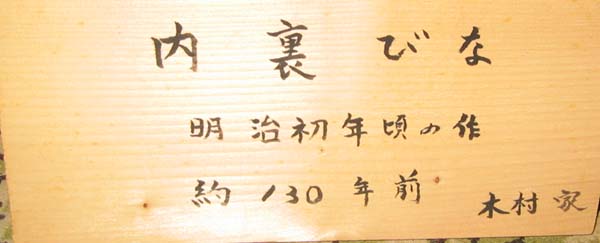 内裏びな
明治初年頃の作
約130年前
木村家